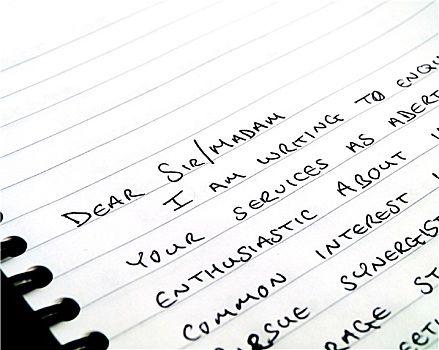 DEAR SIR/MADAM
I AM WRITING TO ENQU
YOUR SERVICES AS ADERT
ENTHUSIASTIC ABOUT
COMMON INTEREST
URSUE SYNERGIS
RAGE ST